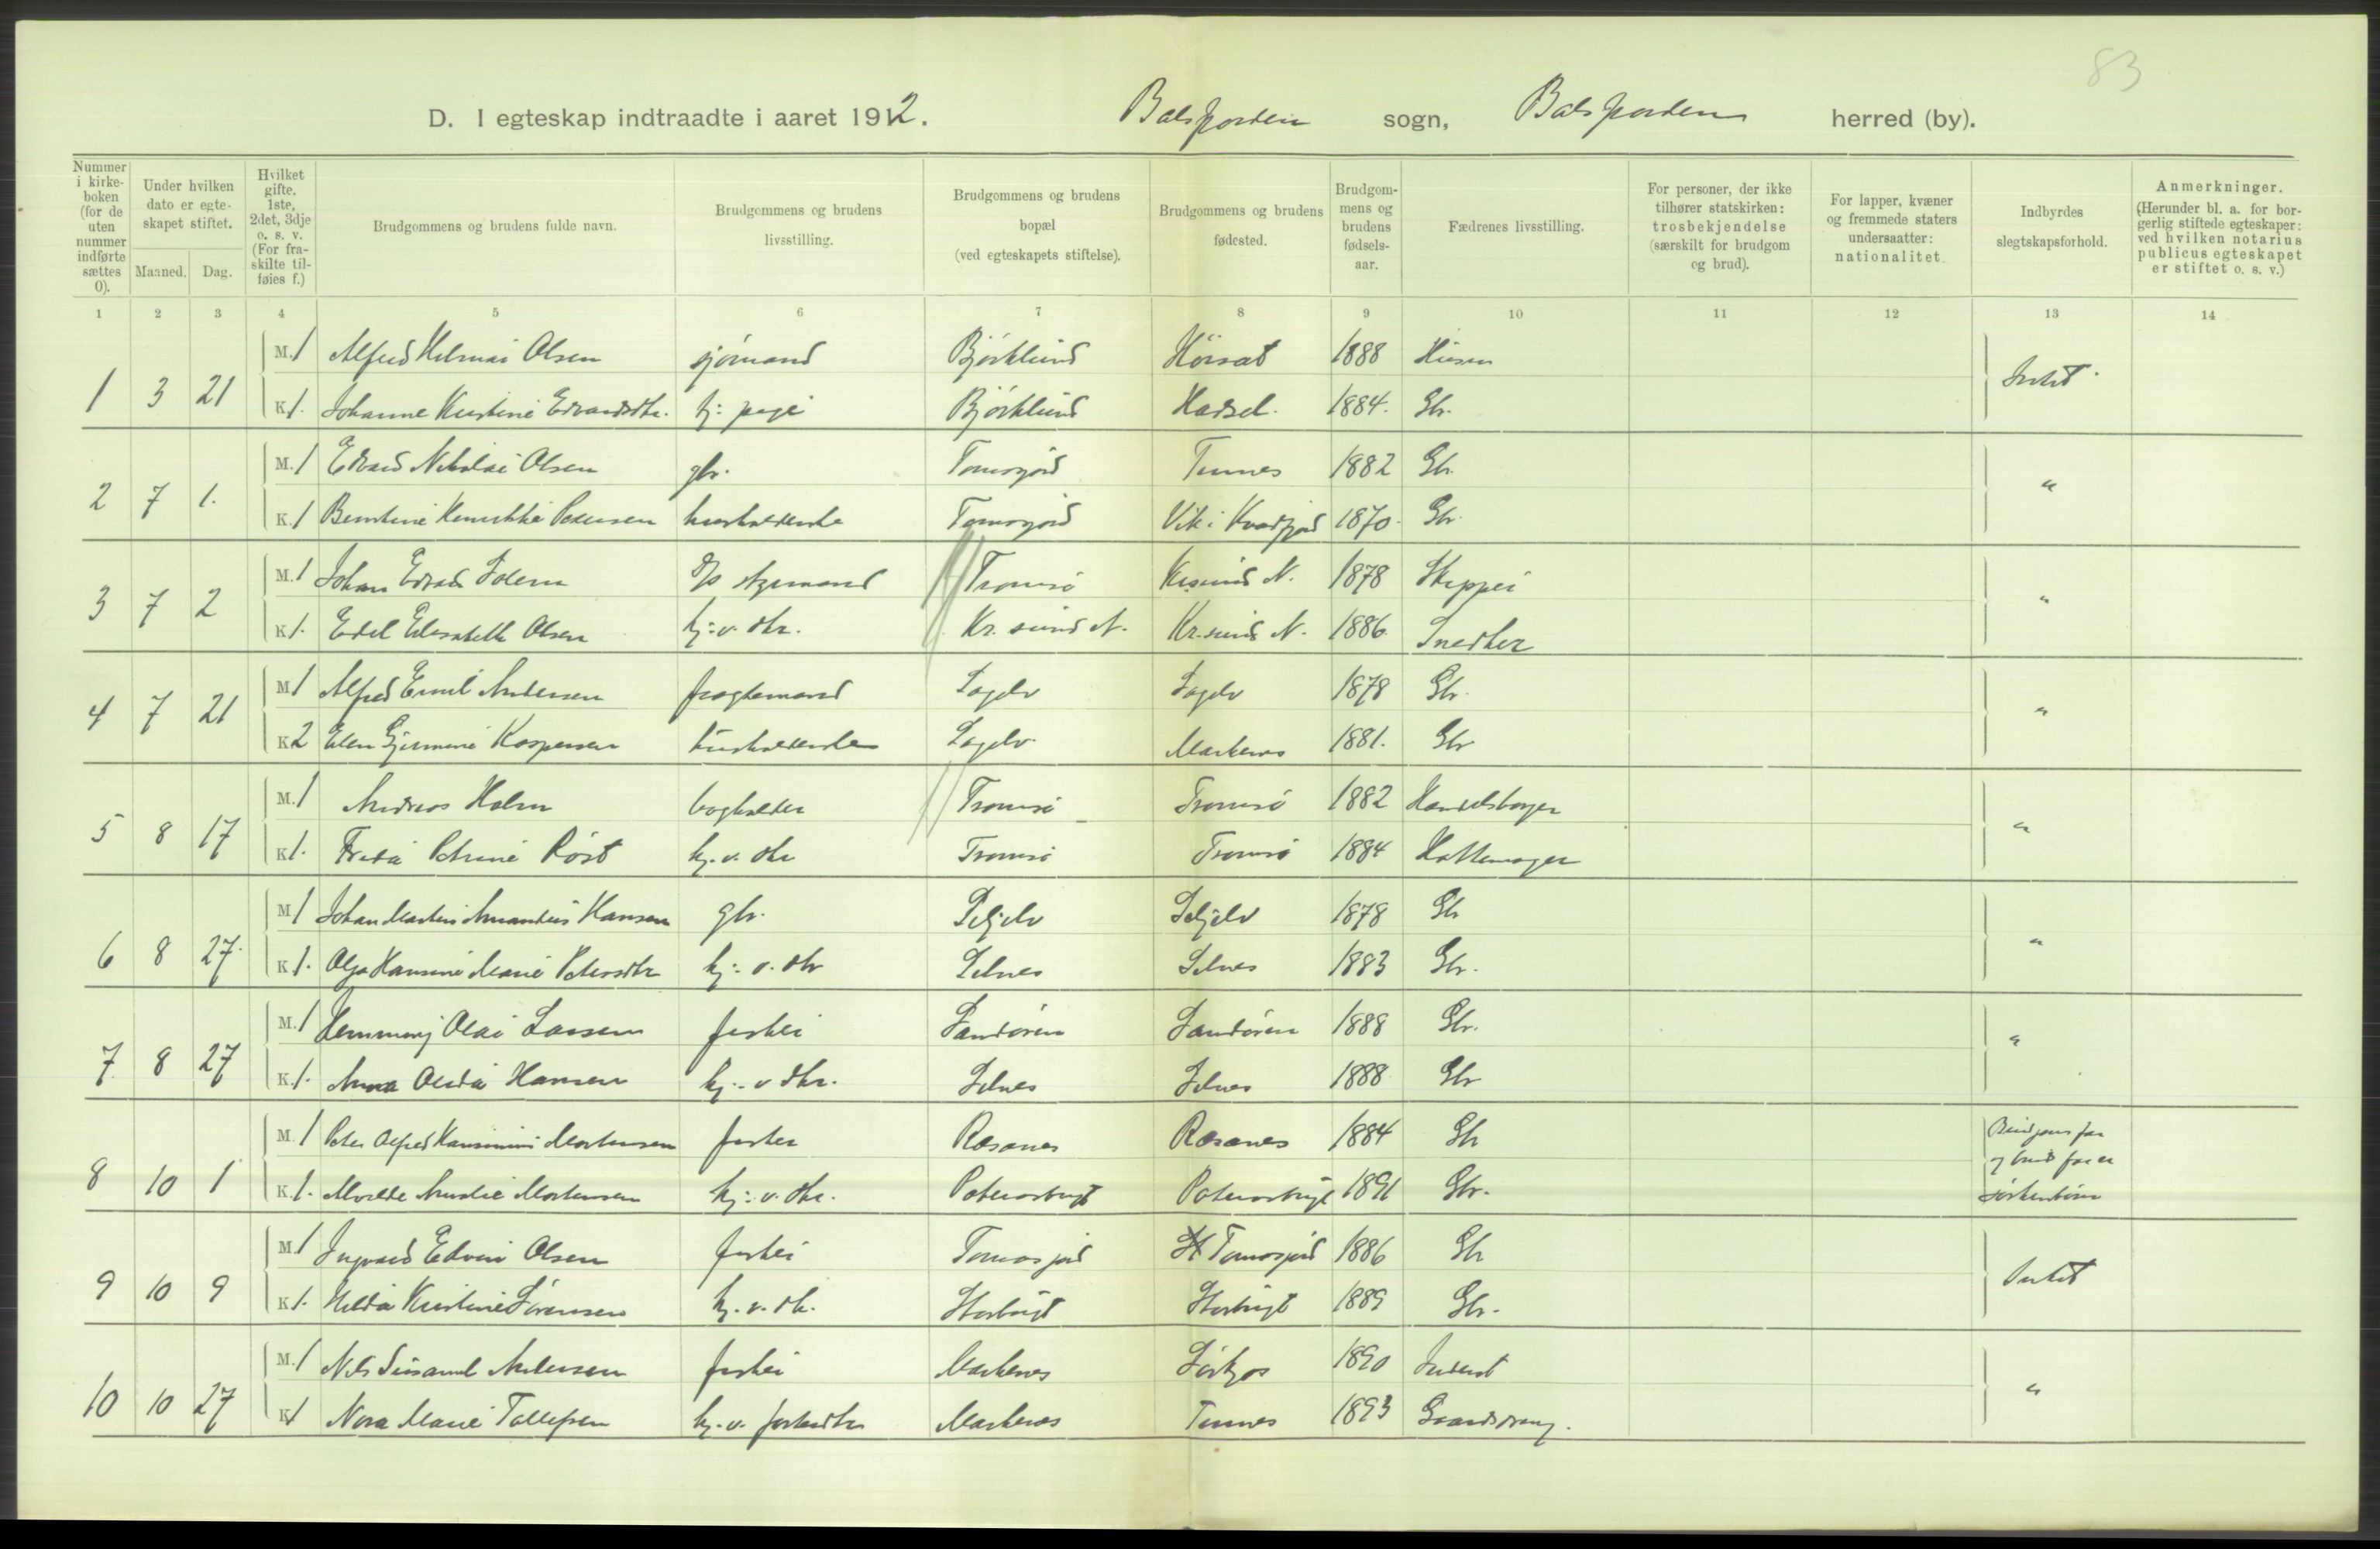 83
D. I egteskap indtraadte i aaret 1912. Balsfjorden sogn, Balsfjorden herred (by).
Nummer i kirkeboken (for de uten nummer indførte sættes 0).
Under hvilken dato er egteskapet stiftet.
Maaned. Dag.
Hvilket gifte. 1ste, 2det, 3dje o. s. v. (For fraskilte tilføies f.)
Brudgommens og brudens fulde navn.
Brudgommens og brudens livsstilling.
Brudgommens og brudens bopæl (ved egteskapets stiftelse).
Brudgommens og brudens fødested.
Brudgommens og brudens fødselsaar.
Fædrenes livsstilling.
For personer, der ikke tilhører statskirken: trosbekjendelse (særskilt for brudgom og brud).
For lapper, kvæner og fremmede staters undersaatter: nationalitet.
Indbyrdes slegtskapsforhold.
Anmerkninger. (Herunder bl. a. for borgerlig stiftede egteskaper: ved hvilken notarius publicus egteskapet er stiftet o. s. v.)
1 2 3 4 5 6 7 8 9 10 11 12 13 14
M. 1 Alfred Hilmar Olsen sjømand Bjørklund 1888
1 3 21 Intet
K. 1. Johanne Kirstine Edvardsdtr. Bjørklund Hadsel. 1884. Gbr.
M. 1 Edvard Nikolai Olsen gbr. Tomasjord Tennes 1882 Gbr.
2 7 1. "
K. 1 Petersen husholderske Tomasjord Vik i Kvædfjord 1870. Gbr.
M. 1 Johan Edvard Tromsø Kr.sund N. 1878 Skipper
3 7 2 "
K. 1. Edel Elisabeth Olsen hj: v. dtr. Kr. sund N. Kr.sund N. 1886. Snedker
M. 1 Alfred Emil Andersen fragtemand Sagelv Sagelv 1878 Gbr.
4 7 21 "
K. 2 Elen Kaspersen husholderske Sagelv Markenes 1881. Gbr
M. 1 Andreas Holm bogholder Tromsø Tromsø 1882 Handelsborger
5 8 17 "
K. 1. Frida Petrine Røst hj. v. dtr Tromsø Tromsø 1884 Hattemager
M. 1 Johan Martin Amandus Hansen gbr. Seljelv Seljelv 1878 Gb
6 8 27. "
K. 1. Olga Hansine Marie Petersdtr hj: v. dtr Selnes Selnes 1883 Gbr.
M. 1 Hemming Olai Larsen fisker Sandøren Sandøren 1888 Gbr.
7 8 27 "
K. 1. Anna Olida Hansen hj: v dtr. Selnes Selnes 1888 Gbr
M. 1 Peter Alfred Mortensen fisker 1884 Gb
8 10 1 Brudgoms far og bruds far er søskenbørn
K. 1. Mortensen hj: v. dtr. 1891 Gbr.
M. 1 Ingvald Edvin Olsen fisker Tomasjord Tomasjord 1886 Gb
9 10 9 Intet
K. 1. Hilda Kirstine Sørensen hj. v. dtr. Storbugt Storbugt 1889 Gbr.
M. 1 Nils Andersen fisker Markenes Sørkjos 1890 Inderst
10 10 27 "
K. 1 Nora Marie Tollefsen Markenes Tennes 1893 Gaardsdreng.